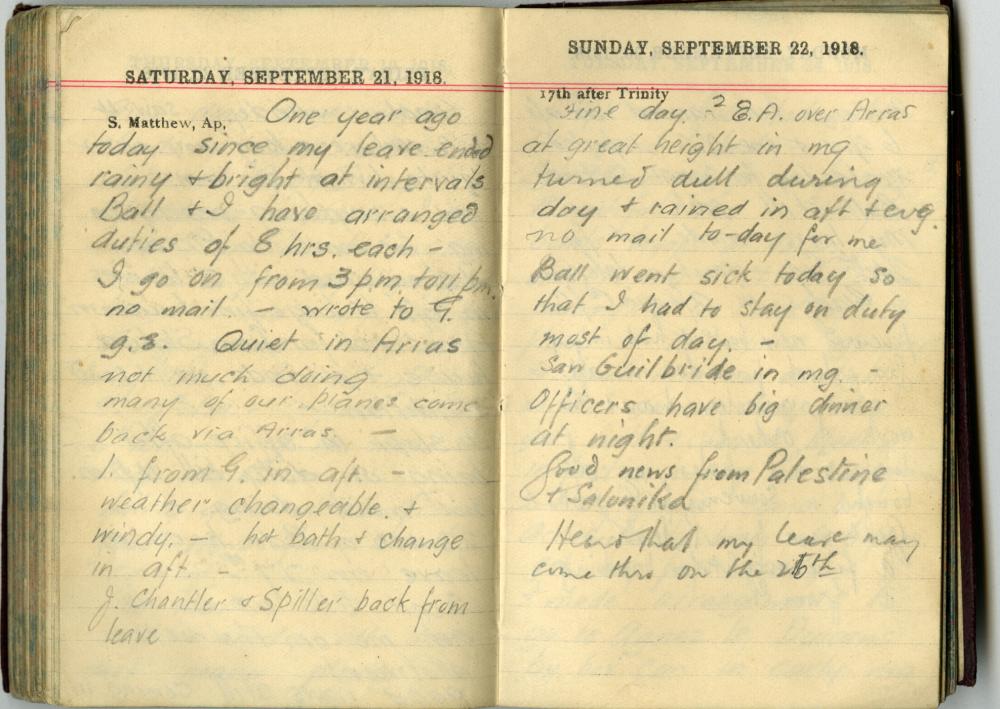 SATURDAY, SEPTEMBER 21, 1918.
S. Matthew, Ap,
One year ago
today since my leave ended
rainy + bright at intervals
Ball + I have arranged
duties of 8 hrs. each -
I go on from 3 p.m. to 11 p.m.
no mail - wrote to G.
Quiet in Arras
not much doing
many of our planes come
back via Arras. -
1. from G. in aft. -
weather changeable. +
windy. - hot bath + change
in aft. -
J. Chantler + Spiller back from
leave
SUNDAY, SEPTEMBER 22, 1918.
17th after Trinity
Fine day. 2 E.A. over Arras
at great height in mg
turned dull during
day + rained in aft + evg.
no mail to-day for me
Ball went sick today so
that I had to stay on duty
most of day. -
Saw Guilbride in mg. -
Officers have big dinner
at night.
Good news from Palestine
+ Salonika
Heard that my leave may
come thro on the